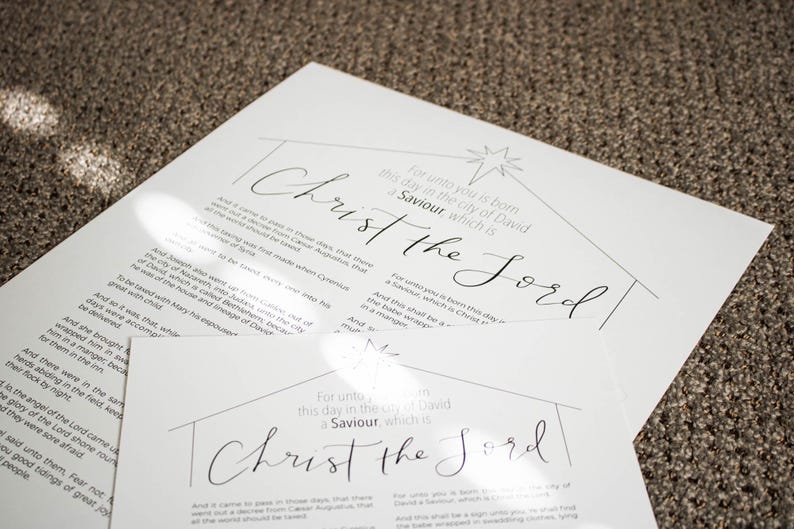 For unto you is born
this day in the city of David
a Saviour, which is
Christ the Lord
And it came to pass in those days, that there
went out a decree from Cæsar Augustus, that
all the world should be taxed.
And this taxing was first made when Cyrenius
was governor of Syria.
And all went to be taxed, every one into his
own city.
And Joseph also went up from Galilee, out of
the city of Nazareth, into Judæa, unto the city
of David, which is called Bethlehem; because
he was of the house and lineage of David
To be taxed with Mary his espoused
great with child.
And so it was, that, while
days were accompli
be delivered.
And she brought f
wrapped him in sw
him in a manger; becau
for them in the inn
And there were in the sam
herds abiding in the field, keep
their flock by night.
lo, the angel of the Lord came u
the glory of the Lord shone roun
d they were sore afraid.
l said unto them, Fear not: f
g you good tidings of great joy,
ll people.
For unto you is born this day in
a Saviour, which is Christ the
And this shall be a
the babe wrappe
in a manger.
And su
mul
For unto you is born
this day in the city of David
a Saviour, which is
Christ the Lord
And it came to pass in those days, that there
went out a decree from Cæsar Augustus, that
all the world should be taxed.
For unto you is born this day in the city of
David a Saviour, which is Christ the Lord.
And this shall be a sign unto you, 're shall find
the babe wrapped in swaddling clothes, lying